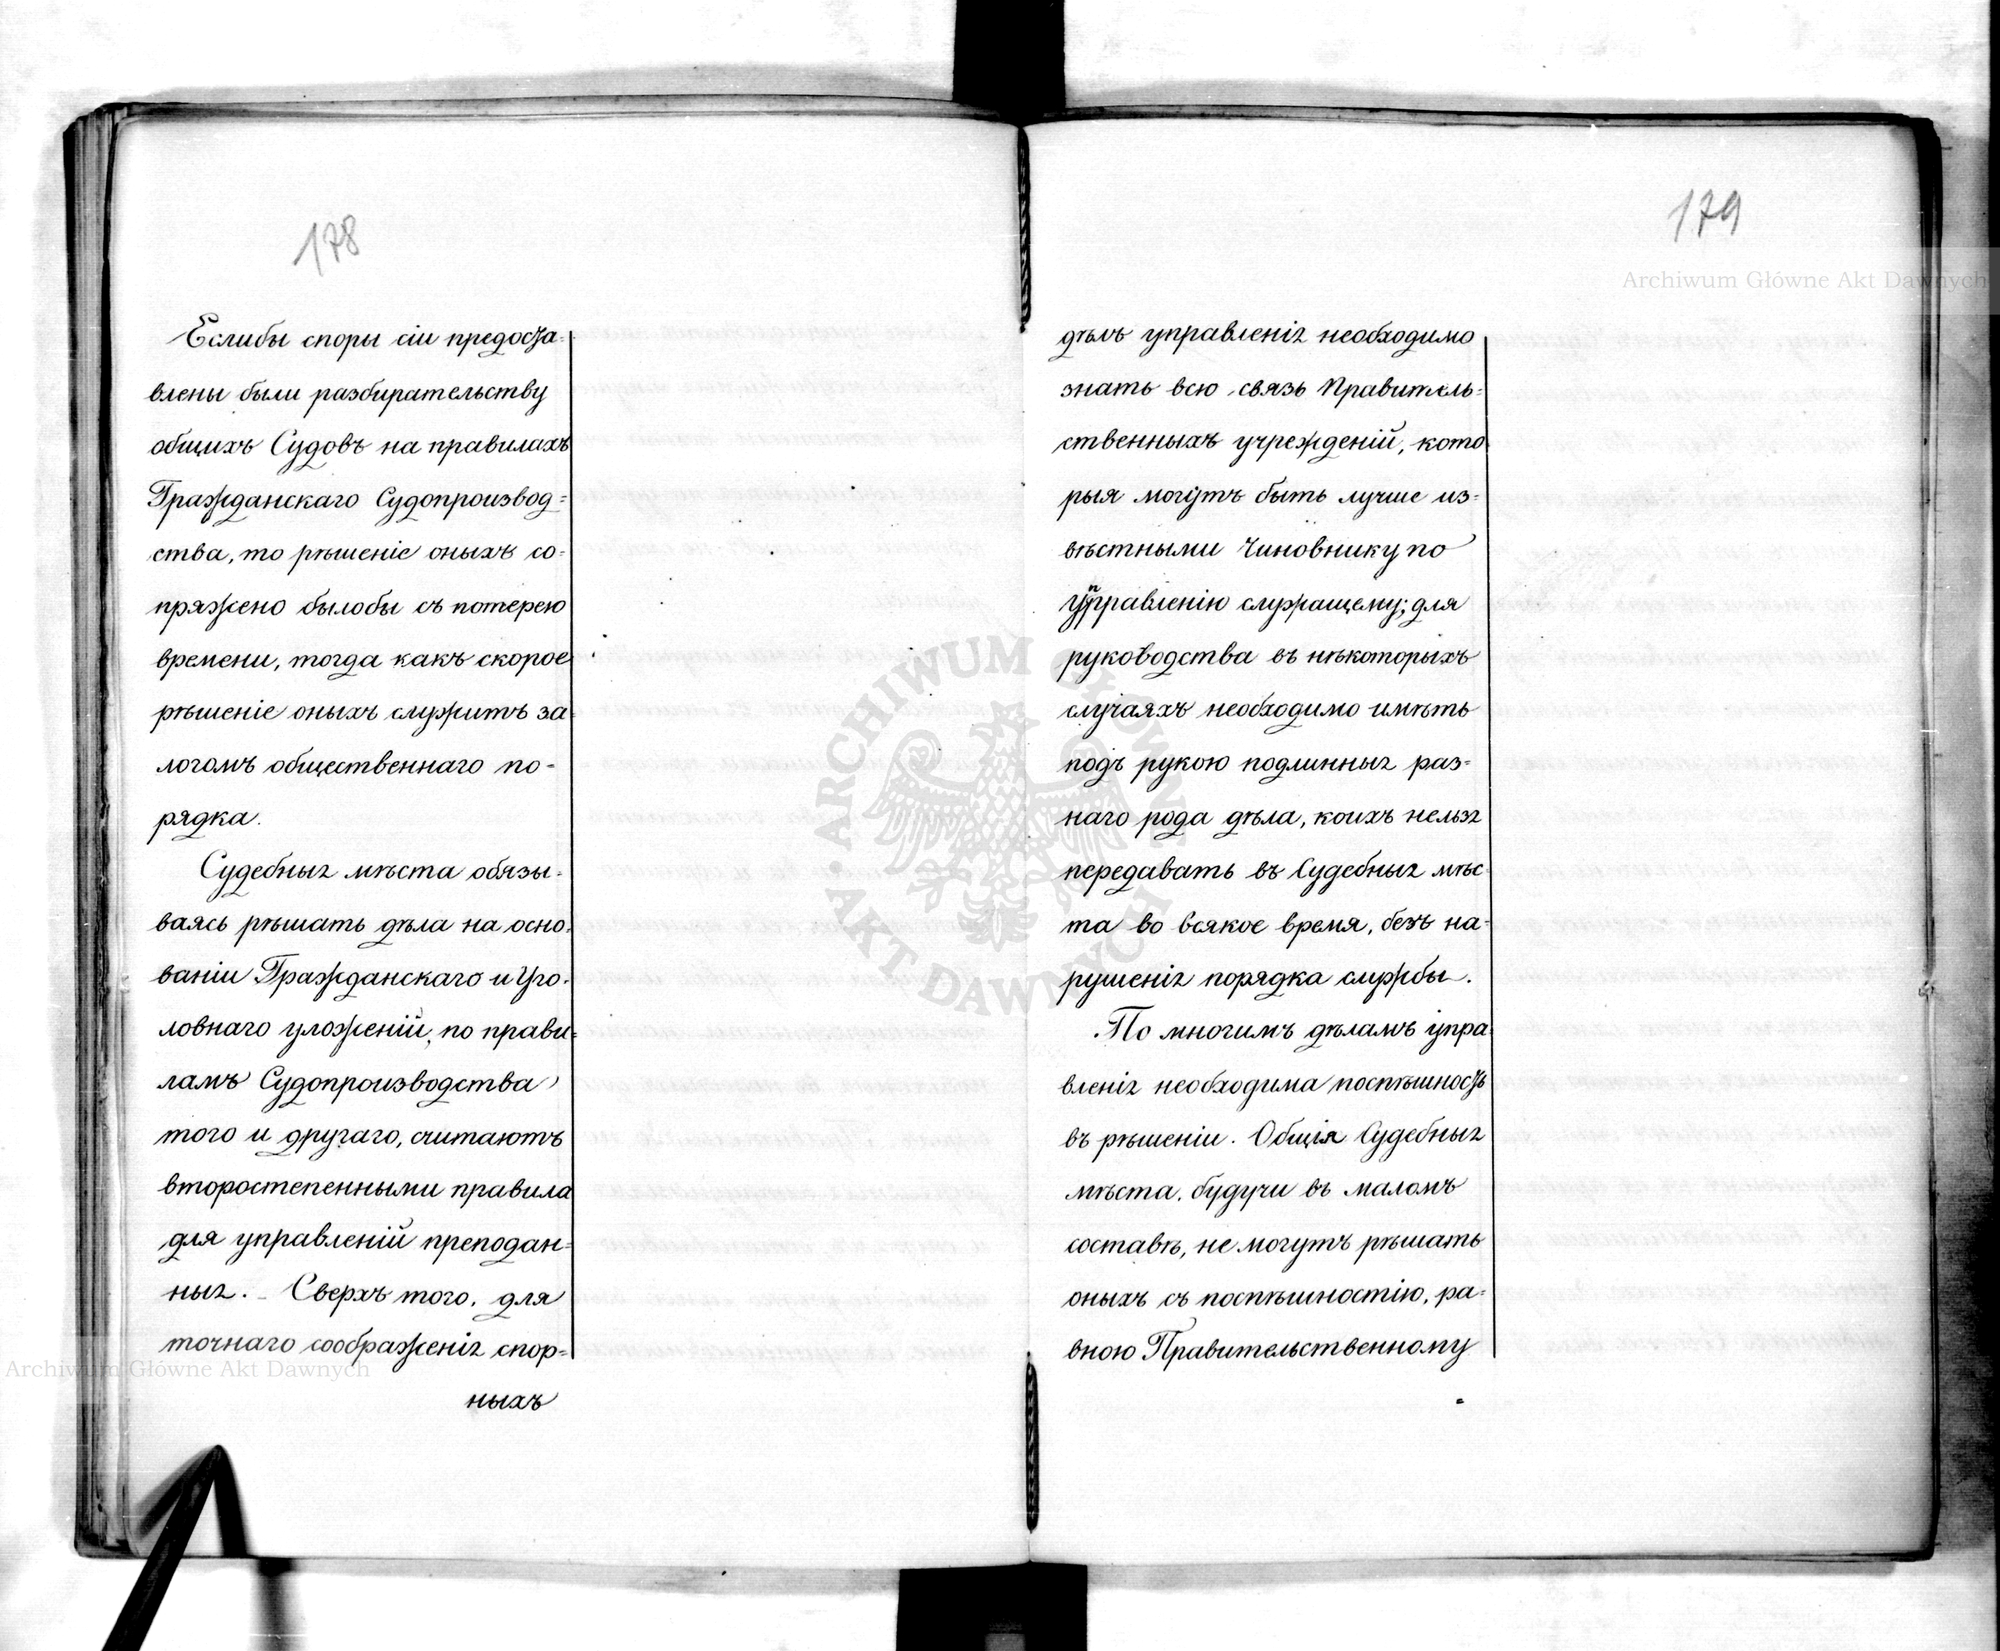 178
Еслибы споры сіи предоста-
влены были разбирательству
общихъ Судовъ на правилахъ
Гражданскаго Судопроизвод=
ства, то рѣшеніе оныхъ со-
пряжено былобы съ потерею
времени, тогда какъ скорое
рѣшеніе оныхъ служитъ за-
логомъ общественнаго по-
рядка.
Судебныя мѣста обязы-
ваясь рѣшать дѣла на осно-
ваніи Гражданскаго и Уго-
ловнаго уложеній, по прави=
ламъ Судопроизводства
того и другаго, считаютъ
второстепенными правила
для управленій преподан=
ныя. - Сверхъ того, для
точнаго соображенія спор=
ныхъ
179
дѣлъ управленія необходимо
знать всю связь Правитель=
ственныхъ учрежденій, кото
рыя могутъ быть лучше из=
вѣстными Чиновнику по
Управленію служащему; для
руководства въ нѣкоторыхъ
случаяхъ необходимо имѣть
подъ рукою подлинныя раз=
наго рода дѣла, коихъ нельзя
передавать въ Судебныя мѣс
та во всякое время, безъ на=
рушенія порядка службы.
По многимъ дѣламъ упра=
вленія необходима поспѣшность
въ рѣшеніи. Общія Судебныя
мѣста, будучи въ маломъ
составѣ, не могутъ рѣшать
оныхъ съ поспѣшностію, ра=
вною Правительственному
Archiwum Główne Akt Dawnych
Archiwum Główne Akt Dawnych
ARCHIWUM GŁÓWNE AKT DAWNYCH